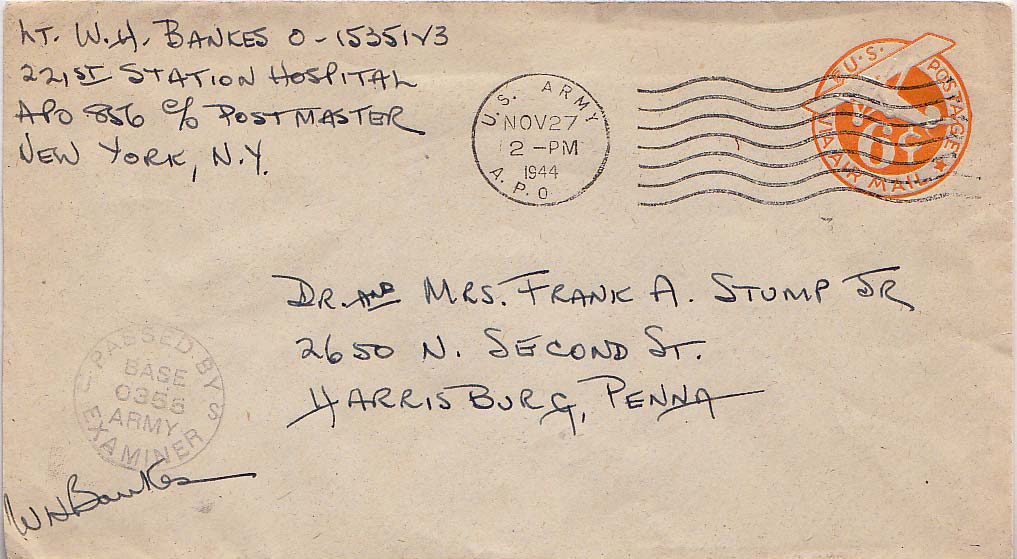 LT. W.H. BANKES O-1535143
221ST STATION HOSPITAL
APO 856 c/o POSTMASTER
NEW YORK, N.Y.
U.S. ARMY
NOV 27
2 -PM
1944
A.P.O
U.S. POSTAGE
6¢
VIA AIR MAIL
DR. AND MRS. FRANK A. STUMP JR
2650 N. SECOND ST.
HARRISBURG, PENNA
PASSED BY
BASE
ARMY
EXAMINER
WHBankes